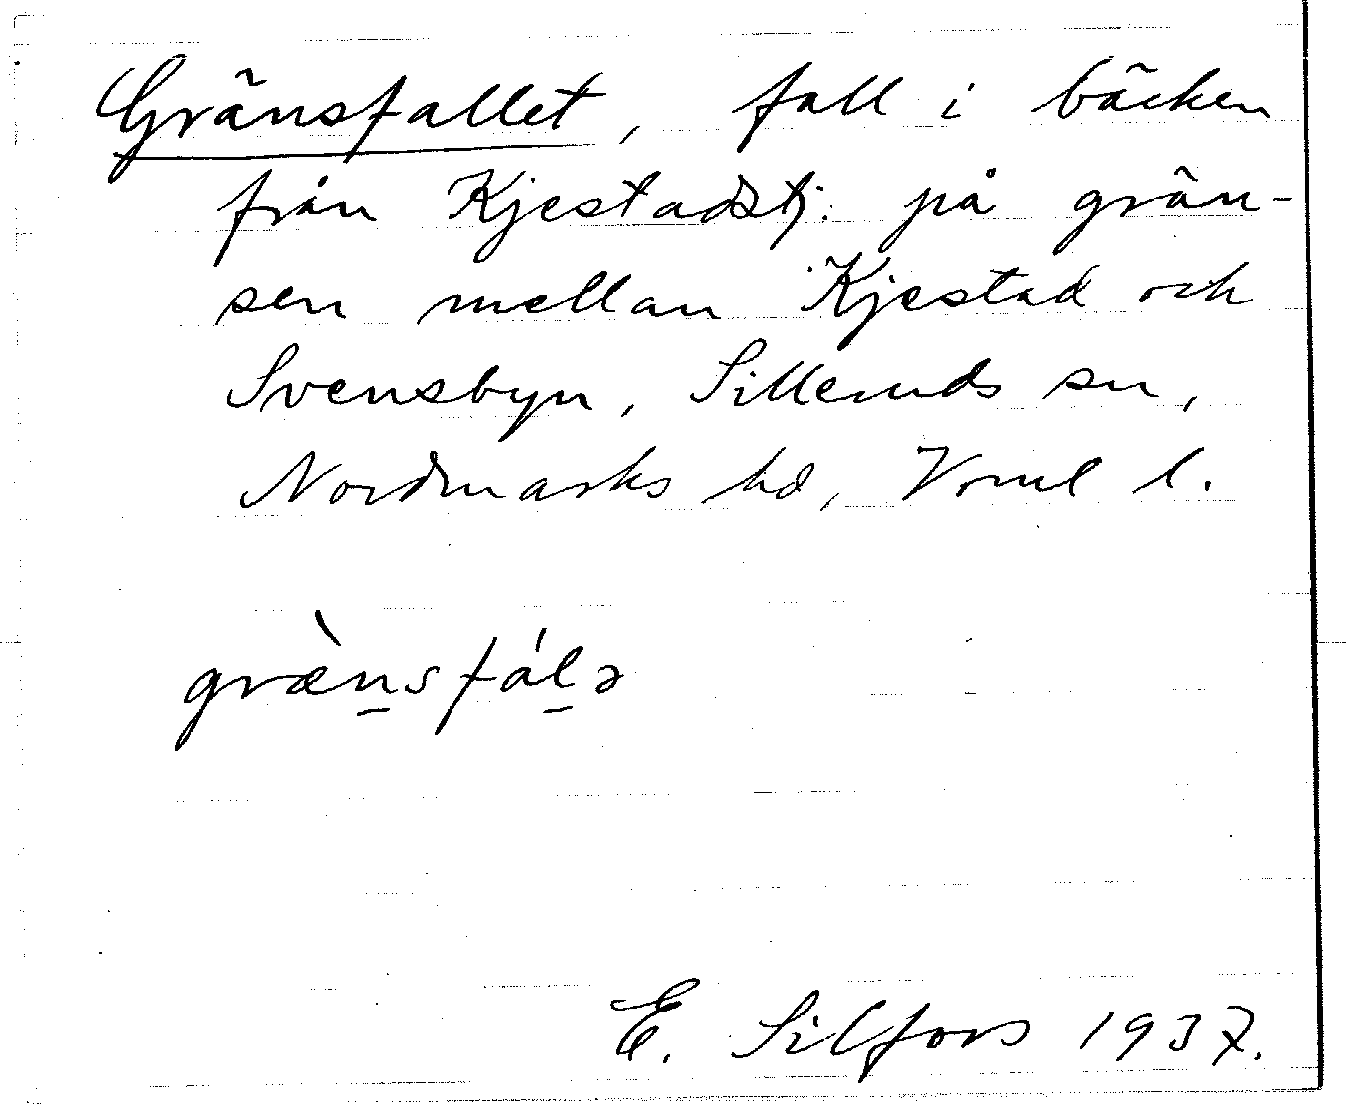 Gränsfallet, fall i bäcken
från Kjestadstj: på grän-
sen mellan Kjestad och
Svensbyn, Silleruds sn,
Nordmarks hd, Vrml l.
græ̀n̲sfál̲ə
E. Silfors 1937.